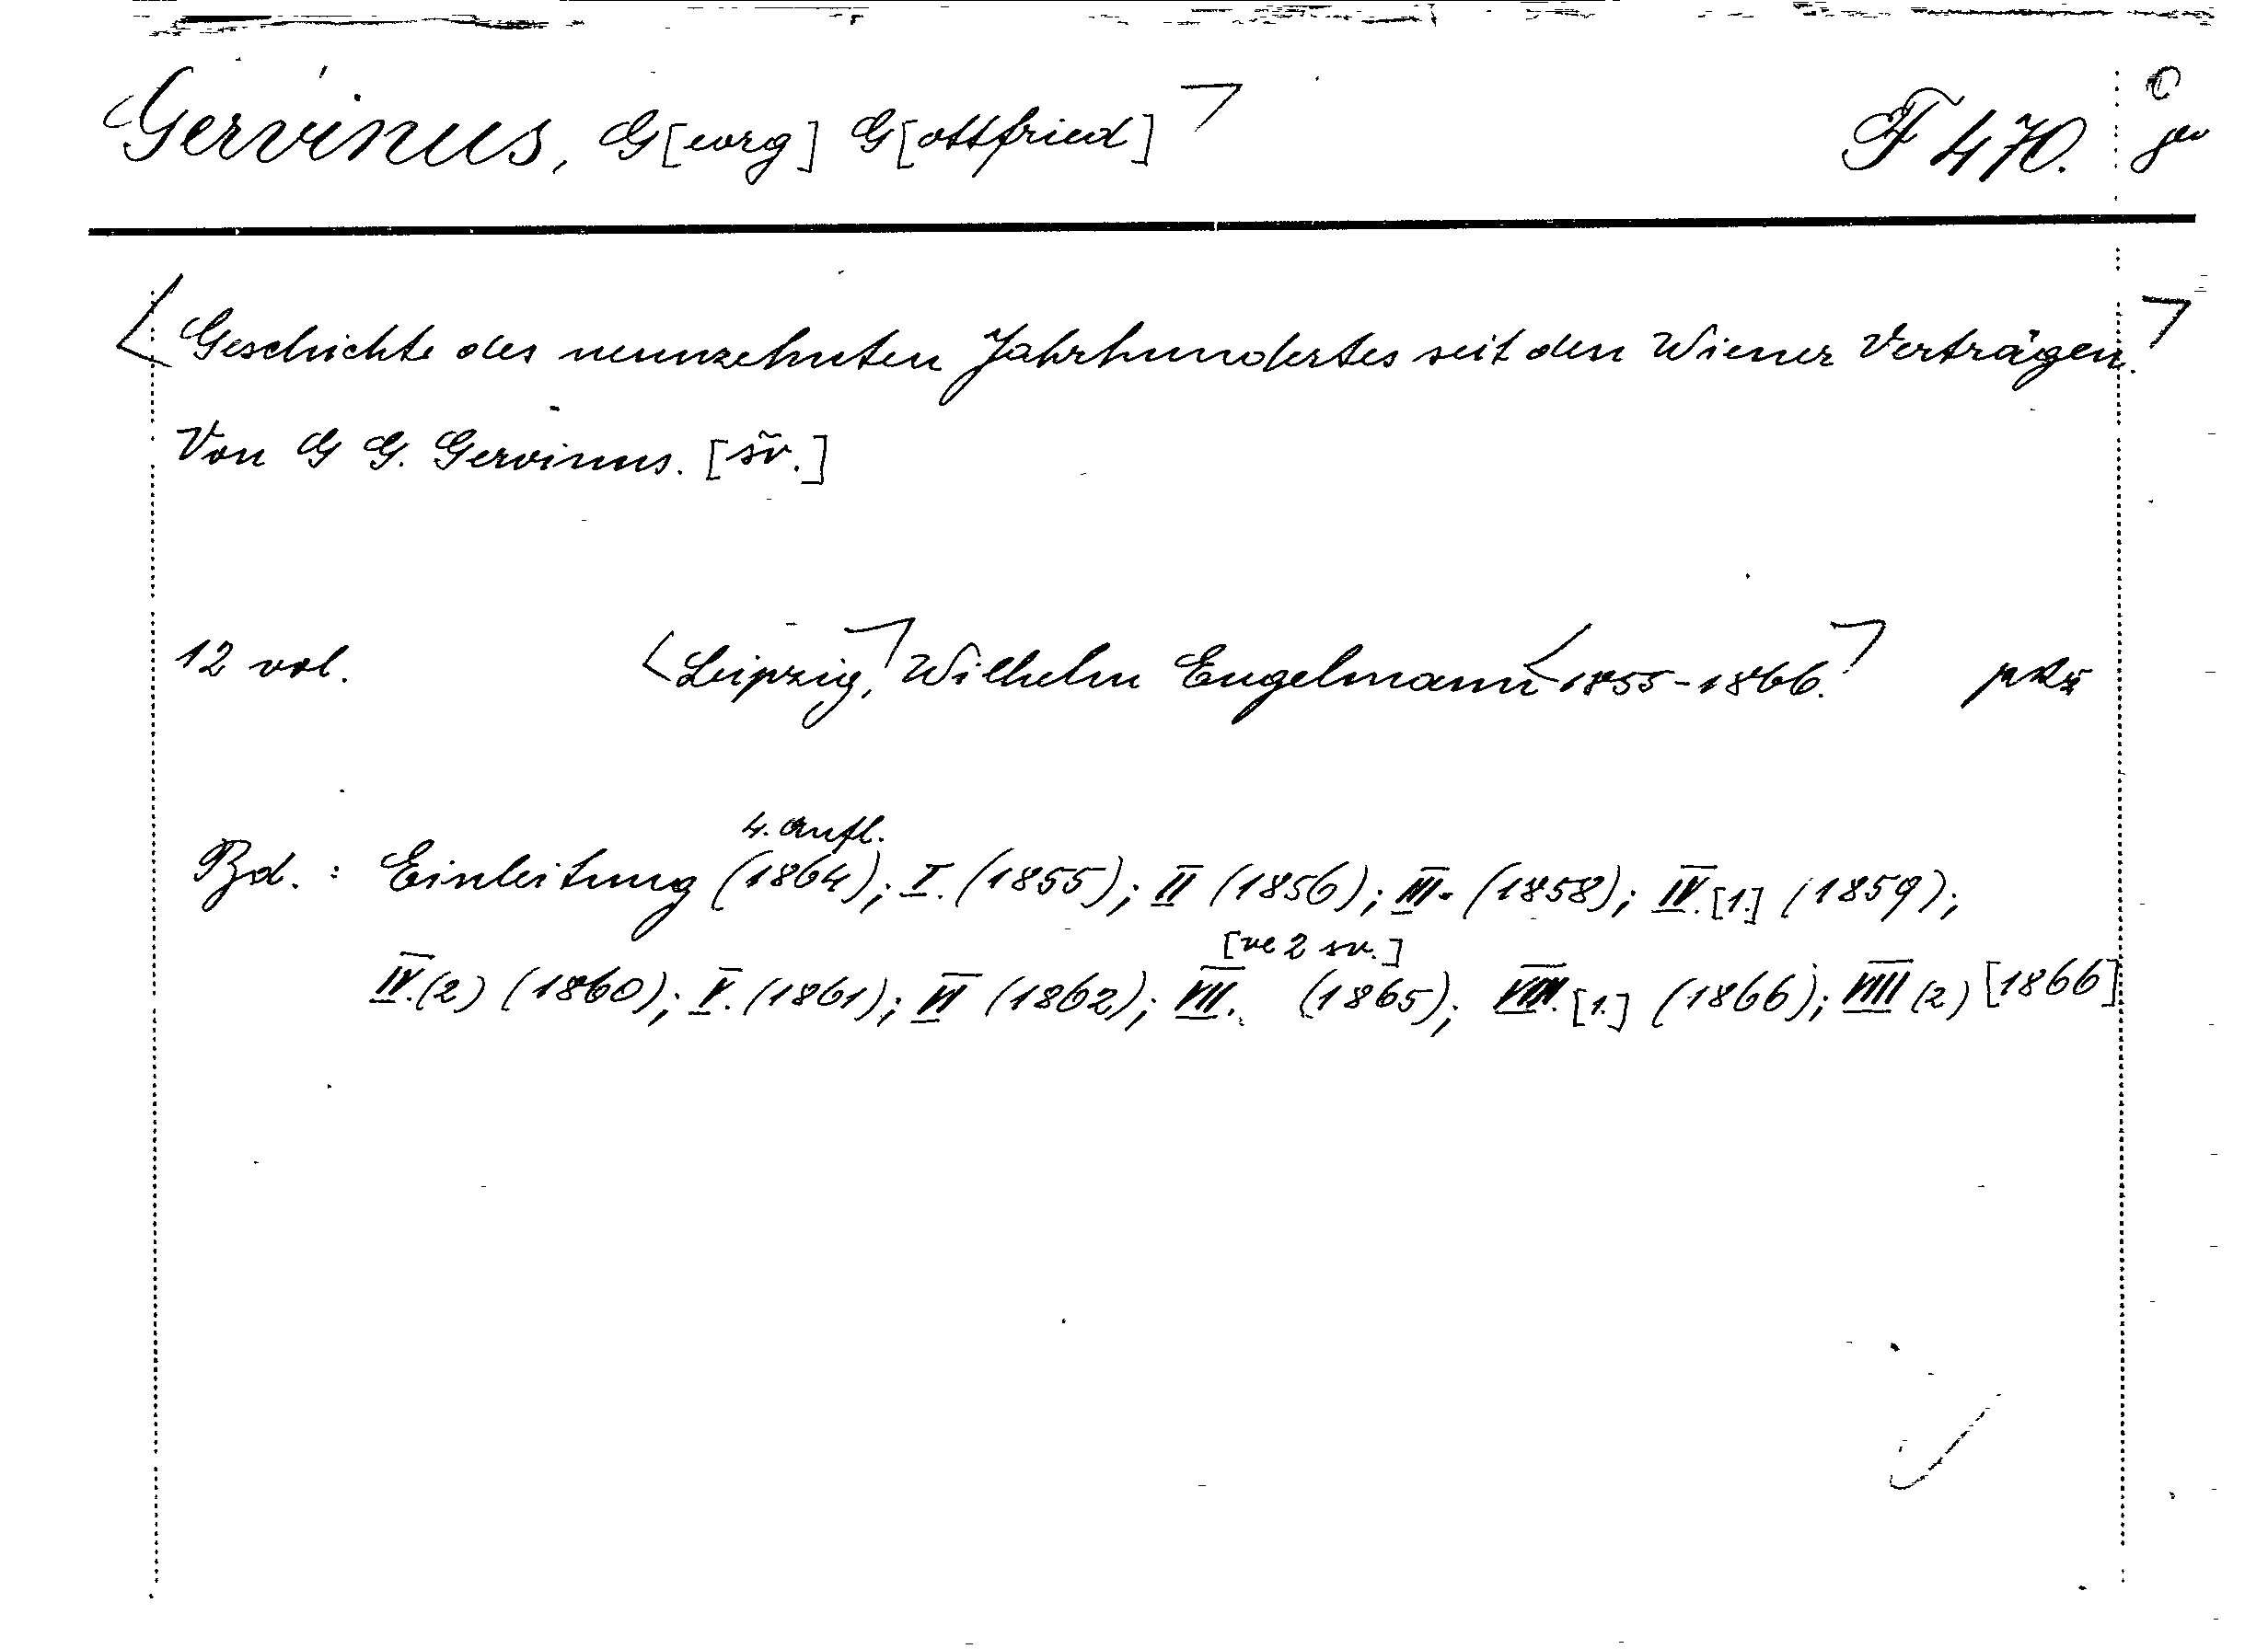 Gervinus, G[eorg] G[ottfried] F 470.
Geschichte des neunzehnten Jahrhundertes seit den Wiener Verträgen.
Von G G. Gervinus. [sv.]
12 vol. Leipzig, Wilhelm Engelmann 1855-1866.
4. Aufl.
Bd. : Einleitung (1864); I. (1855); II (1856); III. (1858); IV. [1.] (1859);
[ve 2 sv.]
IV. (2) (1860); V. (1861); VI (1862); VII. (1865); VIII. [1.] (1866); VIII (2) [1866]